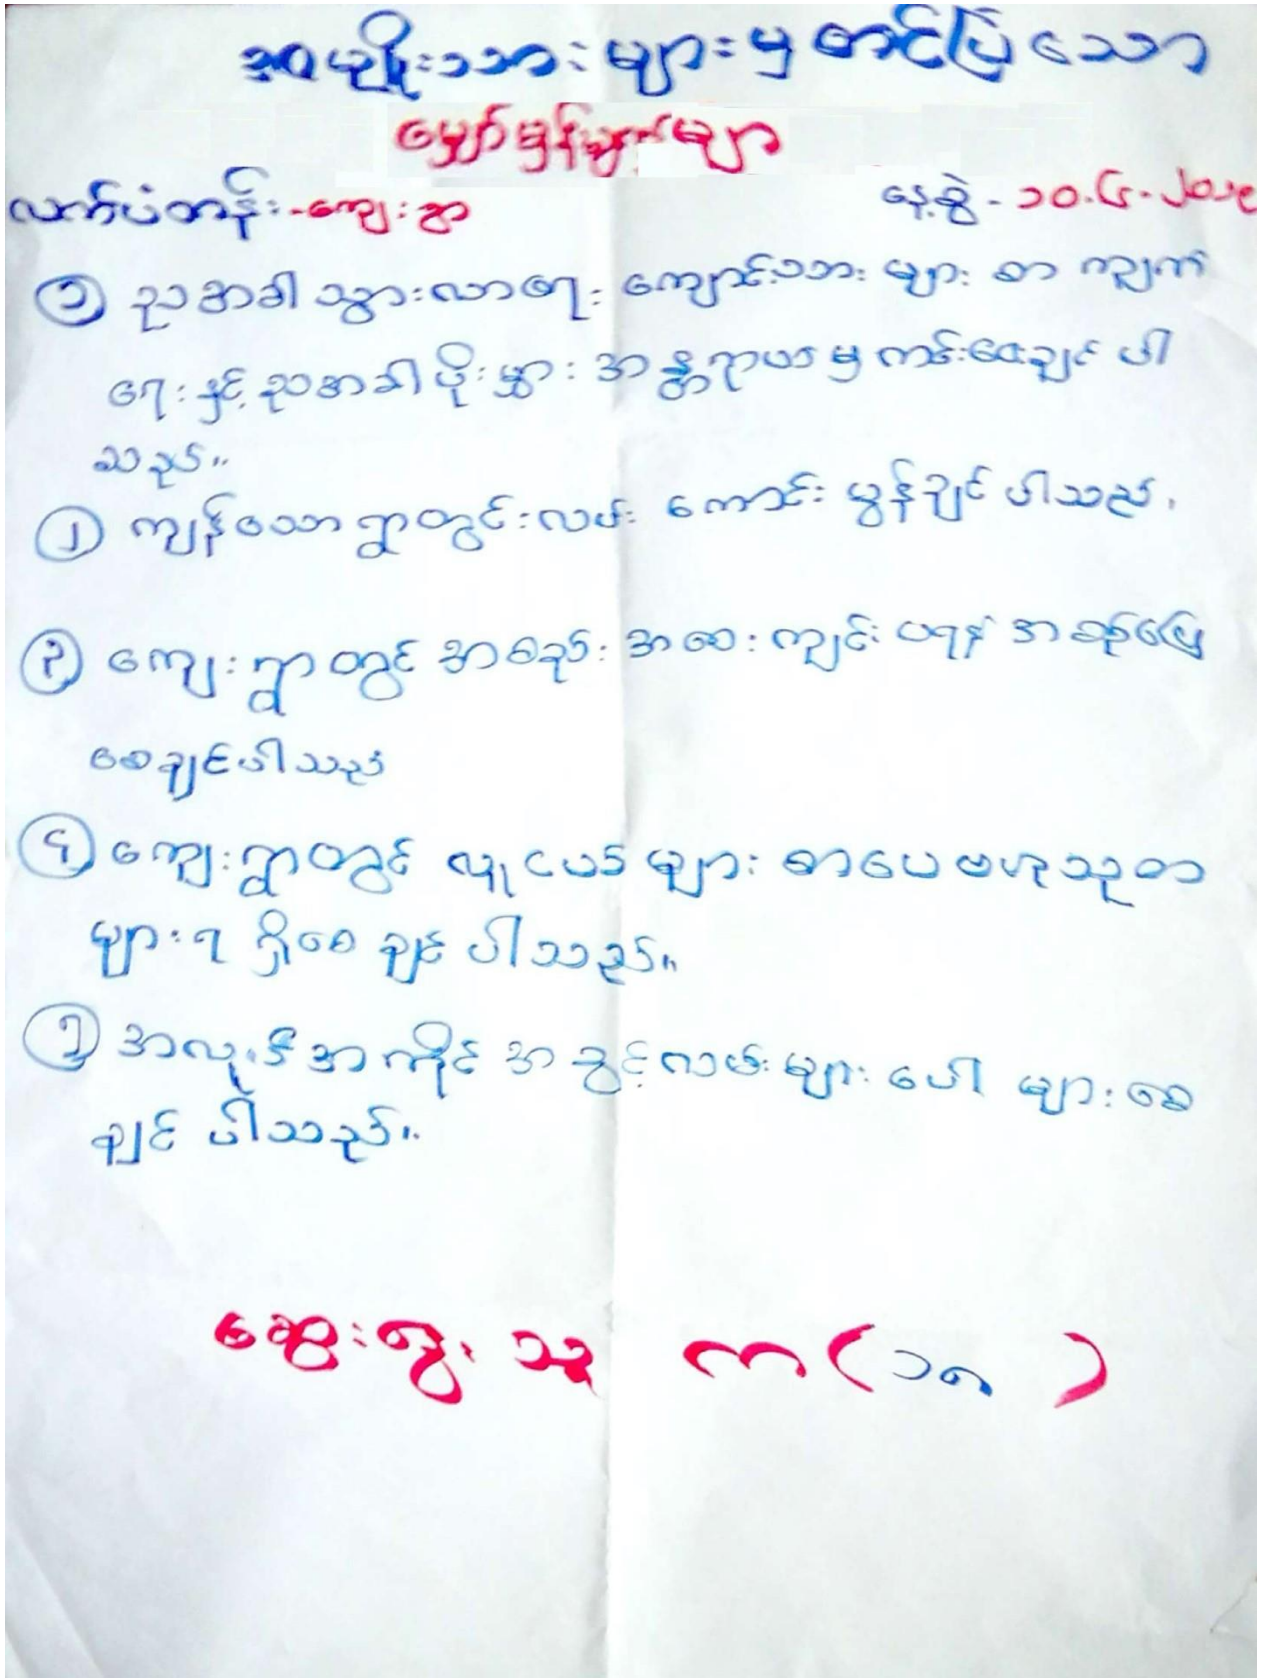 အမျိုးသားများမှတင်ပြသော
မျှော်မှန်းချက်များ
လက်ပံတန်း-ကျေးရွာ နေ့စွဲ-၁၀.၆.၂၀၁၉
၁ ညအခါသွားလာရေး ကျောင်းသားများ စာကျက်
ရေးနှင့်ညအခါပိုးမွှားအန္တရာယ်မှကင်းဝေးချင်ပါ
သည်။
၂ ကျန်သောရွာတွင်းလမ်းကောင်းမွန်ချင်ပါသည်။
၃ ကျေးရွာတွင်အစည်းအဝေးကျင်းပရန်အဆင်ပြေ
စေချင်ပါသည်
၄ ကျေးရွာတွင် လူငယ်များစာပေဗဟုသုတ
များရရှိစေချင်ပါသည်။
၅ အလုပ်အကိုင်အခွင့်လမ်းများပေါများစေ
ချင်ပါသည်။
ဆွေးနွေးသူ ကာ(၁၈)